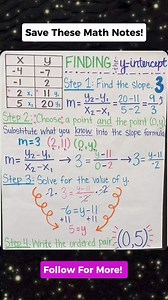 Save These Math Notes!
X Y
-4 -7
-1 2
2 11
5 20
FINDING the y-intercept
Step 1: Find the slope.
m = y₂-y₁ / x₂-x₁ = 20-11 / 5-2 = 9/3 = 3
Step 2: Choose a point and the point (0,y)
Substitute what you know into the slope formula
m=3 (2,11) (0,y)
m = y₂-y₁ / x₂-x₁ → 3 = y-11 / 0-2 → 3 = y-11 / -2
Step 3: Solve for the value of y.
-2·3 = y-11 / -2 · -2
-6 = y-11
+11 +11
5 = y
Step 4: Write the ordered pair. (0,5)
Follow For More!